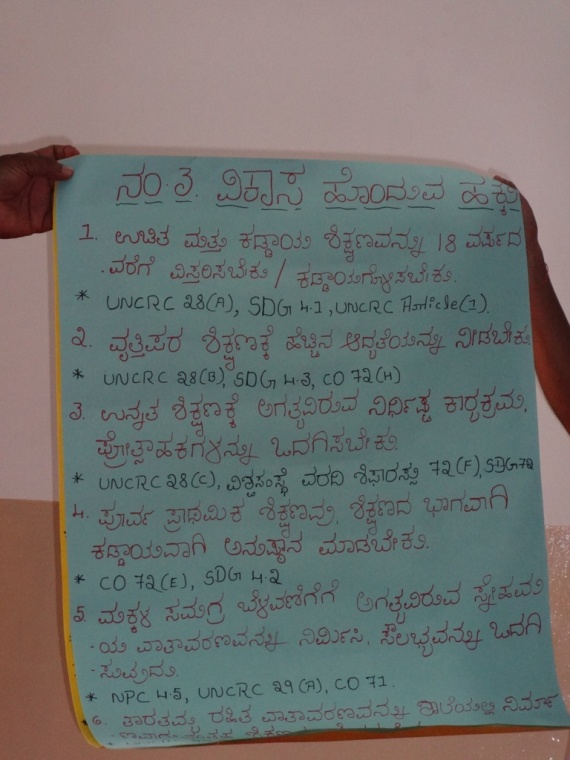 ನಂ.3. ವಿಕಾಸ ಹೊಂದುವ ಹಕ್ಕು
1. ಉಚಿತ ಮತ್ತು ಕಡ್ಡಾಯ ಶಿಕ್ಷಣವನ್ನು 18 ವರ್ಷದ
ವರೆಗೆ ವಿಸ್ತರಿಸಬೇಕು / ಕಡ್ಡಾಯಗೊಳಿಸಬೇಕು.
* UNCRC 28(A), SDG 4.1, UNCRC Article(1).
2. ವೃತ್ತಿಪರ ಶಿಕ್ಷಣಕ್ಕೆ ಹೆಚ್ಚಿನ ಆದ್ಯತೆಯನ್ನು ನೀಡಬೇಕು
* UNCRC 28(B), SDG 4.3, CO 72(H)
3. ಉನ್ನತ ಶಿಕ್ಷಣಕ್ಕೆ ಅಗತ್ಯವಿರುವ ನಿರ್ಧಿಷ್ಟ ಕಾರ್ಯಕ್ರಮ,
ಪ್ರೋತ್ಸಾಹಕಗಳನ್ನು ಒದಗಿಸಬೇಕು.
* UNCRC 28(C), ವಿಶ್ವಸಂಸ್ಥೆ ವರದಿ ಶಿಫಾರಸ್ಸು 72(F), SDG 72
4. ಪೂರ್ವ ಪ್ರಾಥಮಿಕ ಶಿಕ್ಷಣವು, ಶಿಕ್ಷಣದ ಭಾಗವಾಗಿ
ಕಡ್ಡಾಯವಾಗಿ ಅನುಷ್ಠಾನ ಮಾಡಬೇಕು.
* CO 72(E), SDG 4.2
5 ಮಕ್ಕಳ ಸಮಗ್ರ ಬೆಳವಣಿಗೆಗೆ ಅಗತ್ಯವಿರುವ ಸ್ನೇಹಮ
-ಯ ವಾತಾವರಣವನ್ನು ನಿರ್ಮಿಸಿ, ಸೌಲಭ್ಯವನ್ನು ಒದಗಿ
-ಸುವುದು.
* NPC 4.5, UNCRC 29(A), CO 71.
6. ತಾರತಮ್ಯ ರಹಿತ ವಾತಾವರಣವನ್ನು ಶಾಲೆಯಲ್ಲಿ ನಿರ್ಮಾ